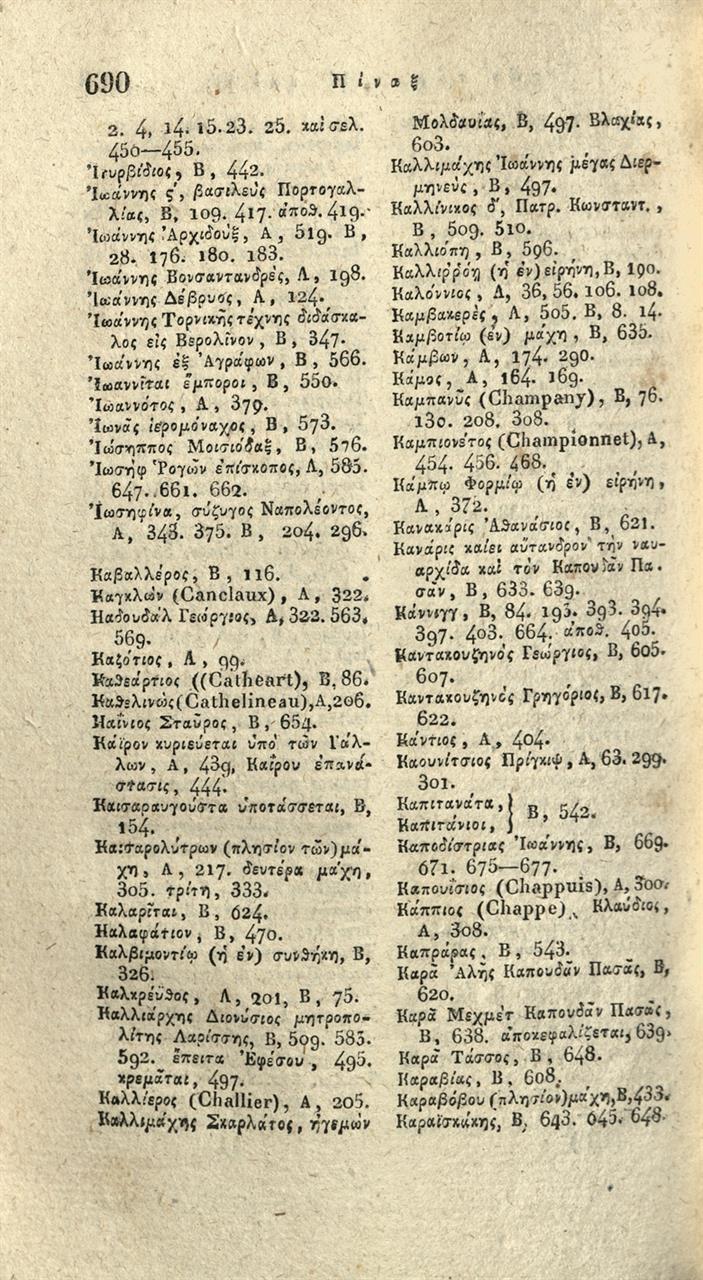 690
Πίναξ
2. 4, 14. 15. 23. 25. καὶ σελ.
450—455.
Ἰερβίδιος, Β, 442.
Ἰωάννης ς΄, βασιλεὺς Πορτογαλ-
λίας, Β, 109. 417. ἀποθ. 419.
Ἰωάννης Ἀρχιδοὺξ, Α, 519. Β,
28. 176. 180. 183.
Ἰωάννης Βονσαντανδρὲς, Α, 198.
Ἰωάννης Δέβρυος, Α, 124.
Ἰωάννης Τορνικῆς τέχνης διδάσκα-
λος εἰς Βερολῖνον, Β, 347.
Ἰωάννης ἐξ Ἀγράφων, Β, 566.
Ἰωαννῖται ἔμποροι, Β, 550.
Ἰωαννότος, Α, 379.
Ἰωνᾶς ἱερομόναχος, Β, 573.
Ἰώσηππος Μοισιόδαξ, Β, 576.
Ἰωσὴφ Ῥογῶν ἐπίσκοπος, Α, 585.
647. 661. 662.
Ἰωσηφίνα, σύζυγος Ναπολέοντος,
Α, 343. 375. Β, 204. 296.
Καβαλλέρος, Β, 116.
Καγκλὼν (Canclaux), Α, 322.
Καδουδὰλ Γεώργιος, Α, 322. 563.
569.
Καζότιος, Α, 99.
Καθεάρτιος ((Catheart), Β, 86.
Καθελινὼς (Cathelineau), Α, 206.
Καΐνιος Σταῦρος, Β, 654.
Κάϊρον κυριεύεται ὑπὸ τῶν Γάλ-
λων, Α, 439, Καΐρου ἐπανά-
στασις, 444.
Καισαραυγούστα ὑποτάσσεται, Β,
154.
Καισαρολύτρων (πλησίον τῶν) μά-
χη, Α, 217. δευτέρα μάχη,
305. τρίτη, 333.
Καλαρῖται, Β, 624.
Καλαφάτιον, Β, 470.
Καλβιμοντίῳ (ἡ ἐν) συνθήκη, Β,
326.
Καλκρέϋθος, Α, 201, Β, 75.
Καλλιάρχης Διονύσιος μητροπο-
λίτης Λαρίσσης, Β, 509. 583.
592. ἔπειτα Ἐφέσου, 495.
κρεμᾶται, 497.
Καλλίερος (Challier), Α, 205.
Καλλιμάχης Σκαρλάτος, ἡγεμὼν
Μολδαυΐας, Β, 497. Βλαχίας,
603.
Καλλιμάχης Ἰωάννης μέγας Διερ-
μηνεὺς, Β, 497.
Καλλίνικος δ΄, Πατρ. Κωνσταντ.,
Β, 509. 510.
Καλλιόπη, Β, 596.
Καλλιῤῥόῃ (ἡ ἐν) εἰρήνη, Β, 190.
Καλόννιος, Α, 36, 56. 106. 108.
Καμβακερὲς, Α, 505. Β, 8. 14.
Καμβοτίῳ (ἐν) μάχη, Β, 635.
Κάμβων, Α, 174. 290.
Κάμος, Α, 164. 169.
Καμπανῦς (Champany), Β, 76.
130. 208. 308.
Καμπιονέτος (Championnet), Α,
454. 456. 468.
Κάμπῳ Φορμίῳ (ἡ ἐν) εἰρήνη,
Α, 372.
Κανακάρις Ἀθανάσιος, Β, 621.
Κανάρις καίει αὔτανδρον τὴν ναυ-
αρχίδα καὶ τὸν Καπουδὰν Πα-
σᾶν, Β, 633. 639.
Κάννιγγ, Β, 84. 193. 393. 394.
397. 403. 664. ἀποθ. 405.
Καντακουζηνὸς Γεώργιος, Β, 605.
607.
Καντακουζηνὸς Γρηγόριος, Β, 617.
622.
Κάντιος, Α, 404.
Καουνίτσιος Πρίγκιψ, Α, 63. 299.
301.
Καπιτανάτα, } Β, 542.
Καπιτάνιοι,
Καποδίστριας Ἰωάννης, Β, 669.
671. 675—677.
Καπουΐσιος (Chappuis), Α, 300.
Κάππιος (Chappe), Κλαύδιος,
Α, 308.
Καπράρας, Β, 543.
Καρᾶ Ἀλῆς Καπουδᾶν Πασᾶς, Β,
620.
Καρᾶ Μεχμὲτ Καπουδᾶν Πασᾶς,
Β, 638. ἀποκεφαλίζεται, 639.
Καρᾶ Τάσσος, Β, 648.
Καραβίας, Β, 608.
Καραβόβου (πλησίον) μάχη, Β, 433.
Καραϊσκάκης, Β, 643. 645. 648.